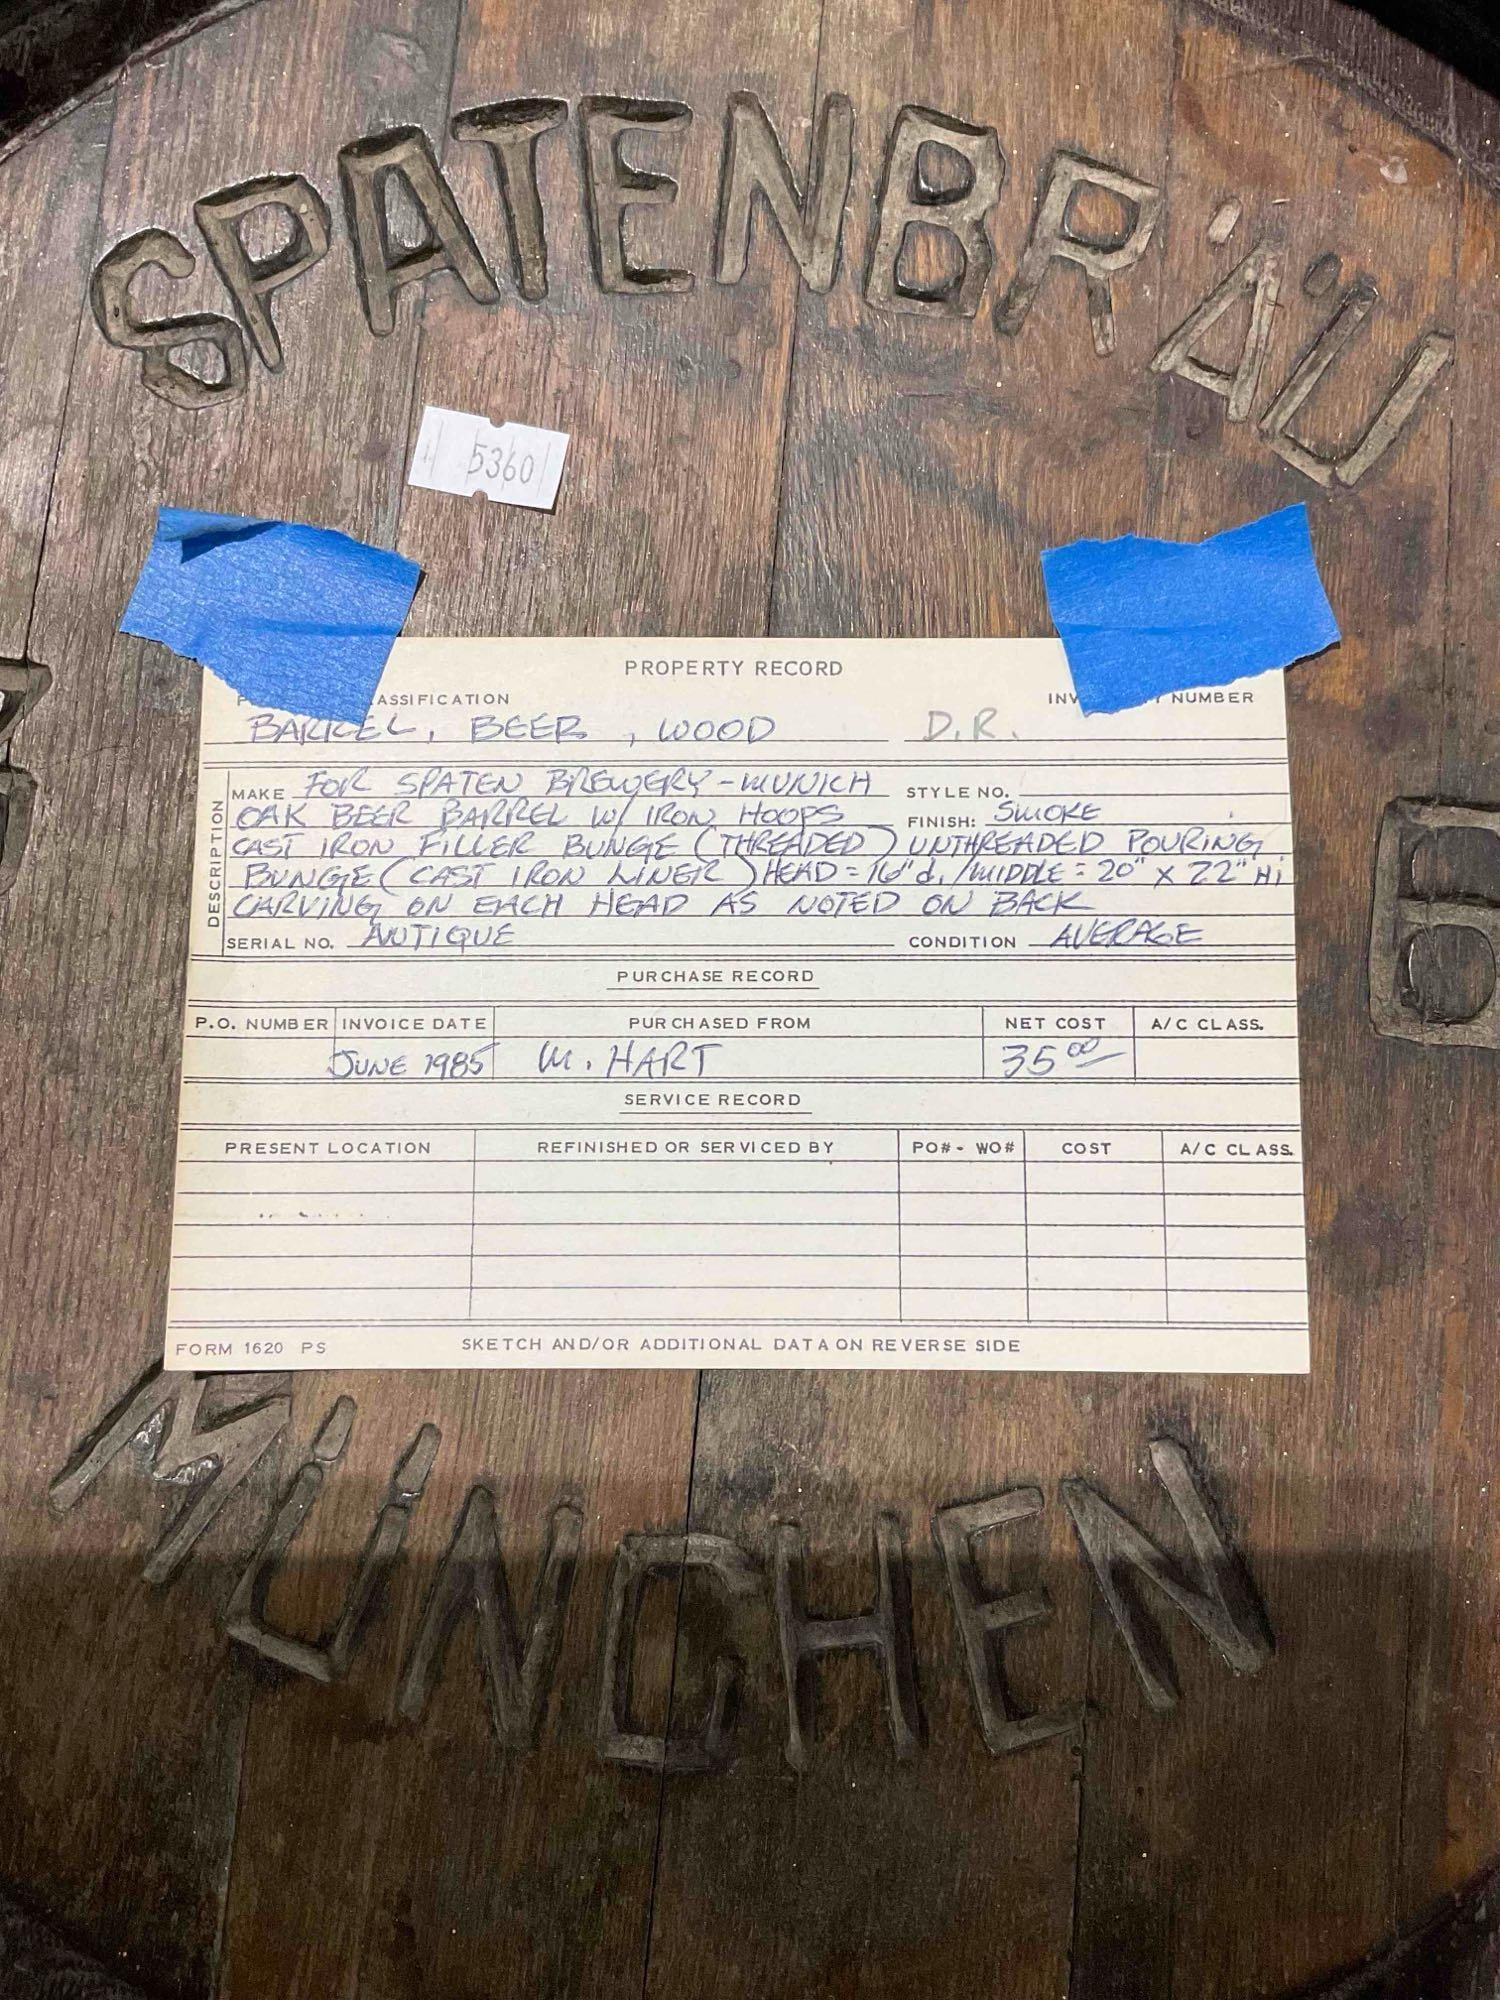 SPATENBRÄÜ
5360
PROPERTY RECORD
ASSIFICATION INV Y NUMBER
BARREL, BEER, WOOD D.R.
DESCRIPTION
MAKE FOR SPATEN BREWERY-MUNICH STYLE NO.
OAK BEER BARREL W/ IRON HOOPS FINISH: SMOKE
CAST IRON FILLER BUNGE (THREADED) UNTHREADED POURING
BUNGE (CAST IRON LINER) HEAD = 16" d. /MIDDLE = 20" X 22" Hi
CARVING ON EACH HEAD AS NOTED ON BACK
SERIAL NO. ANTIQUE CONDITION AVERAGE
PURCHASE RECORD
P.O. NUMBER INVOICE DATE PURCHASED FROM NET COST A/C CLASS.
JUNE 1985 M. HART 35 00
SERVICE RECORD
PRESENT LOCATION REFINISHED OR SERVICED BY PO#- WO# COST A/C CLASS.
FORM 1620 PS SKETCH AND/OR ADDITIONAL DATA ON REVERSE SIDE
MÜNCHEN